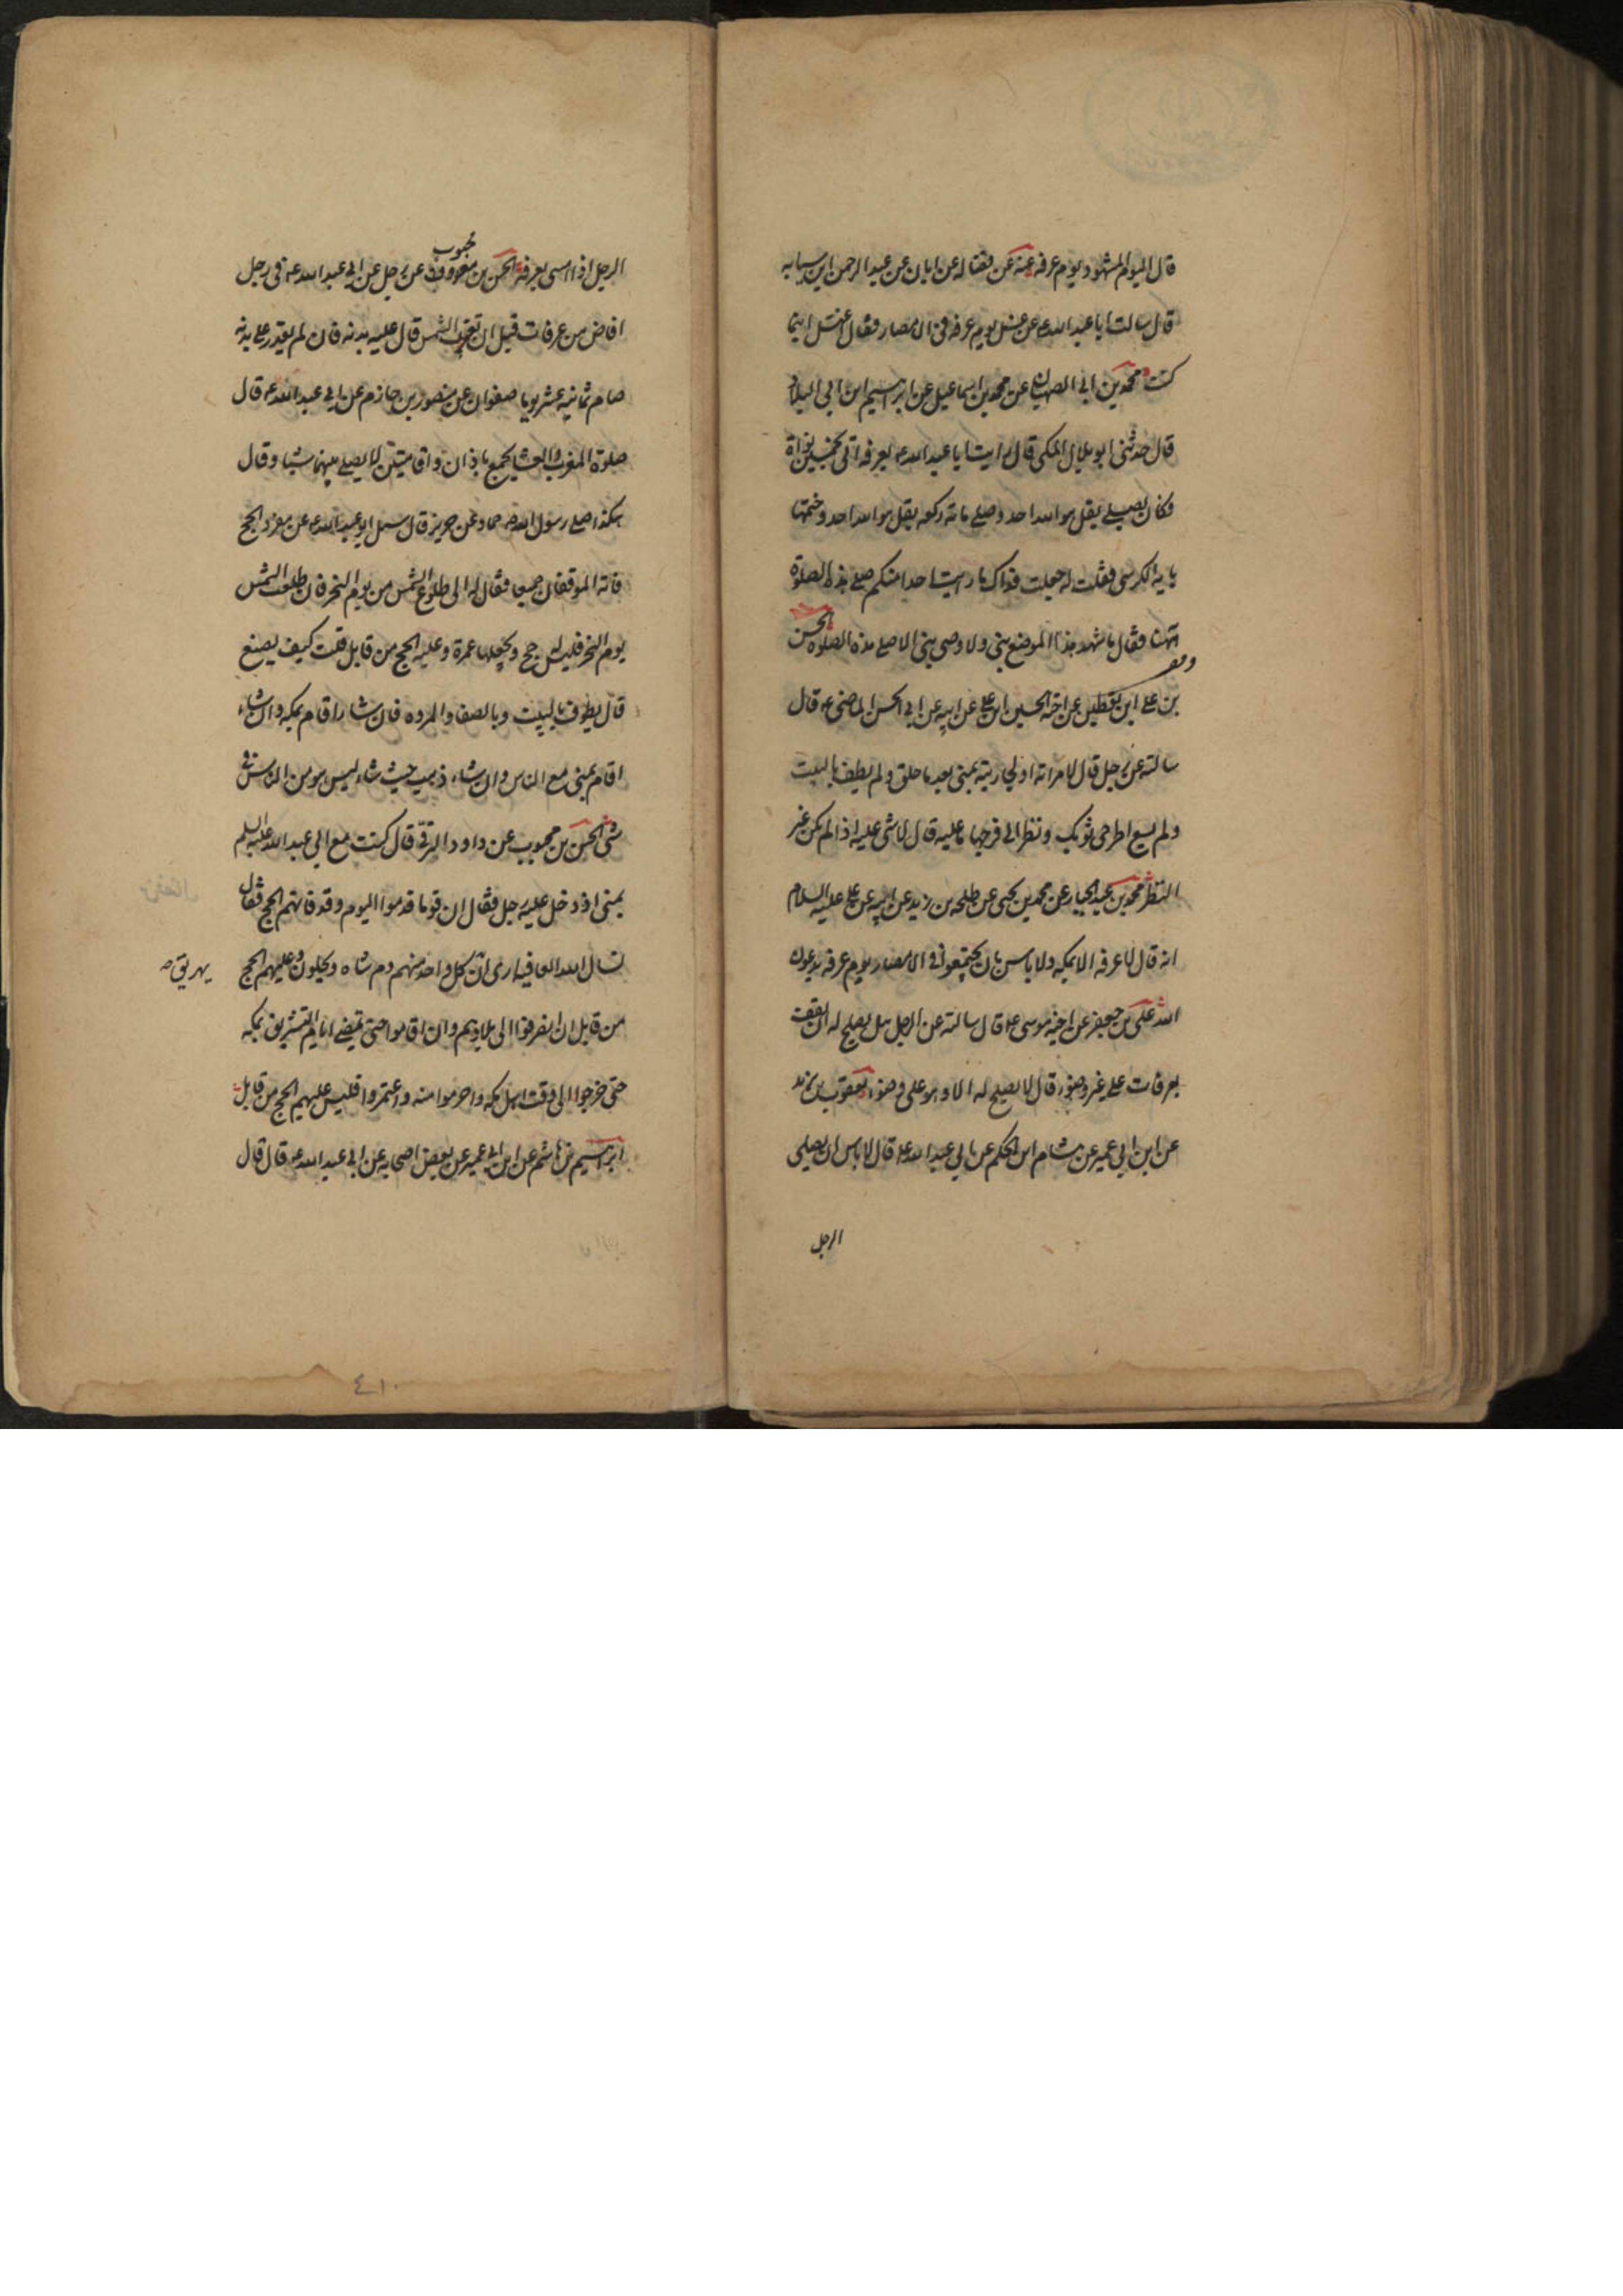 قال اليوم المشهود يوم عرفه عنه عن فضاله عن ابان عن عبد الرحمن ابن سيابه
قال سالت ابا عبد الله ع عن غسل يوم عرفه فى الامصار فقال اغتسل اينما
كنت محمد بن ابى الصهبان عن محمد بن اسماعيل عن ابرهيم ابن ابى البلاد
قال حدثنى ابو بلال المكى قال رايت ابا عبد الله ع بعرفه اتى بخمسين نواة
فكان يصلى بقل هو الله احد وصلى مائة ركعه بقل هو الله احد وختمها
باية الكرسى فقلت له جعلت فداك ما رايت احدا منكم صلى هذه الصلوة
ههنا فقال ما شهد هذا الموضع نبى ولا وصى نبى الا صلى هذه الصلوة الحسن
بن على ابن يقطين عن اخيه الحسين ابن على عن ابيه عن ابى الحسن الماضى ع قال
سالته عن رجل قال لامراته او لجاريته بمنى بعد ما حلق ولم يطف بالبيت
ولم يسع اطرحى ثوبك ونظر الى فرجها ما عليه قال لا شى عليه اذا لم يكن غير
النظر محمد بن عبد الجبار عن محمد بن يحيى عن طلحه بن زيد عن ابيه عن على عليه السلام
انه قال لا عرفه الا بمكه ولا باس بان يجتمعوا فى الامصار يوم عرفه يدعون
الله على بن جعفر عن اخيه موسى ع قال سالته عن الرجل هل يصلح له ان يقف
بعرفات على غير وضوء قال لا يصلح له الا وهو على وضوء يعقوب بن يزيد
عن ابن ابى عمير عن هشام ابن الحكم عن ابى عبد الله ع قال لا باس ان يصلى
الرجل
محبوب
الرجل اذا امسى بعرفه الحسن بن عن رجل عن ابى عبد الله ع فى رجل
افاض من عرفات قبل ان تغرب الشمس قال عليه بدنه فان لم يقدر على بدنه
صام ثمانيه عشر يوما صفوان عن منصور بن حازم عن ابى عبد الله ع قال
صلوة المغرب والعشا بجمع باذان واقامتين لا يصلى بينهما شيا وقال
هكذا صلى رسول الله ص حماد عن حريز قال سئل ابو عبد الله ع عن مفرد الحج
فاته الموقفان جميعا فقال له الى طلوع الشمس من يوم النحر فان طلعت الشمس
يوم النحر فليس له حج ويجعلها عمرة وعليه الحج من قابل قلت كيف يصنع
قال يطوف بالبيت وبالصفا والمروه فان شاء اقام بمكه وان شاء
اقام بمنى مع الناس وان شاء ذهب حيث شاء ليس هو من الناس فى
شى الحسن بن محبوب عن داود الرقى قال كنت مع ابى عبد الله عليه السلم
بمنى اذ دخل عليه رجل فقال ان قوما قدموا اليوم وقد فاتهم الحج فقال
نسال الله العافيه ارى ان كل واحد منهم دم شاه ويحلون وعليهم الحج
يهريق
من قابل ان انصرفوا الى بلادهم وان اقاموا حتى تمضى ايام التشريق بمكه
حتى خرجوا الى وقت اهل مكه واحرموا منه واعتمروا فليس عليهم الحج من قابل
ابرهيم بن هاشم عن ابن ابى عمير عن بعض اصحابه عن ابى عبد الله ع قال قال
٤١٠